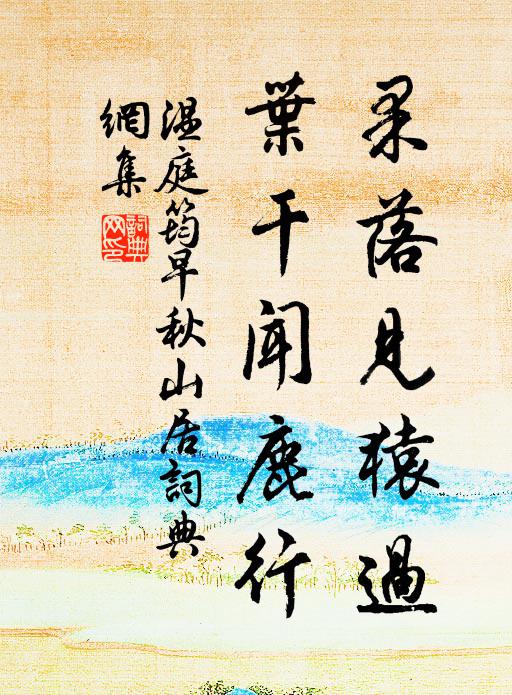 果落見猿過
葉干聞鹿行
温庭筠早秋山居詞典
網集
詞典
网印